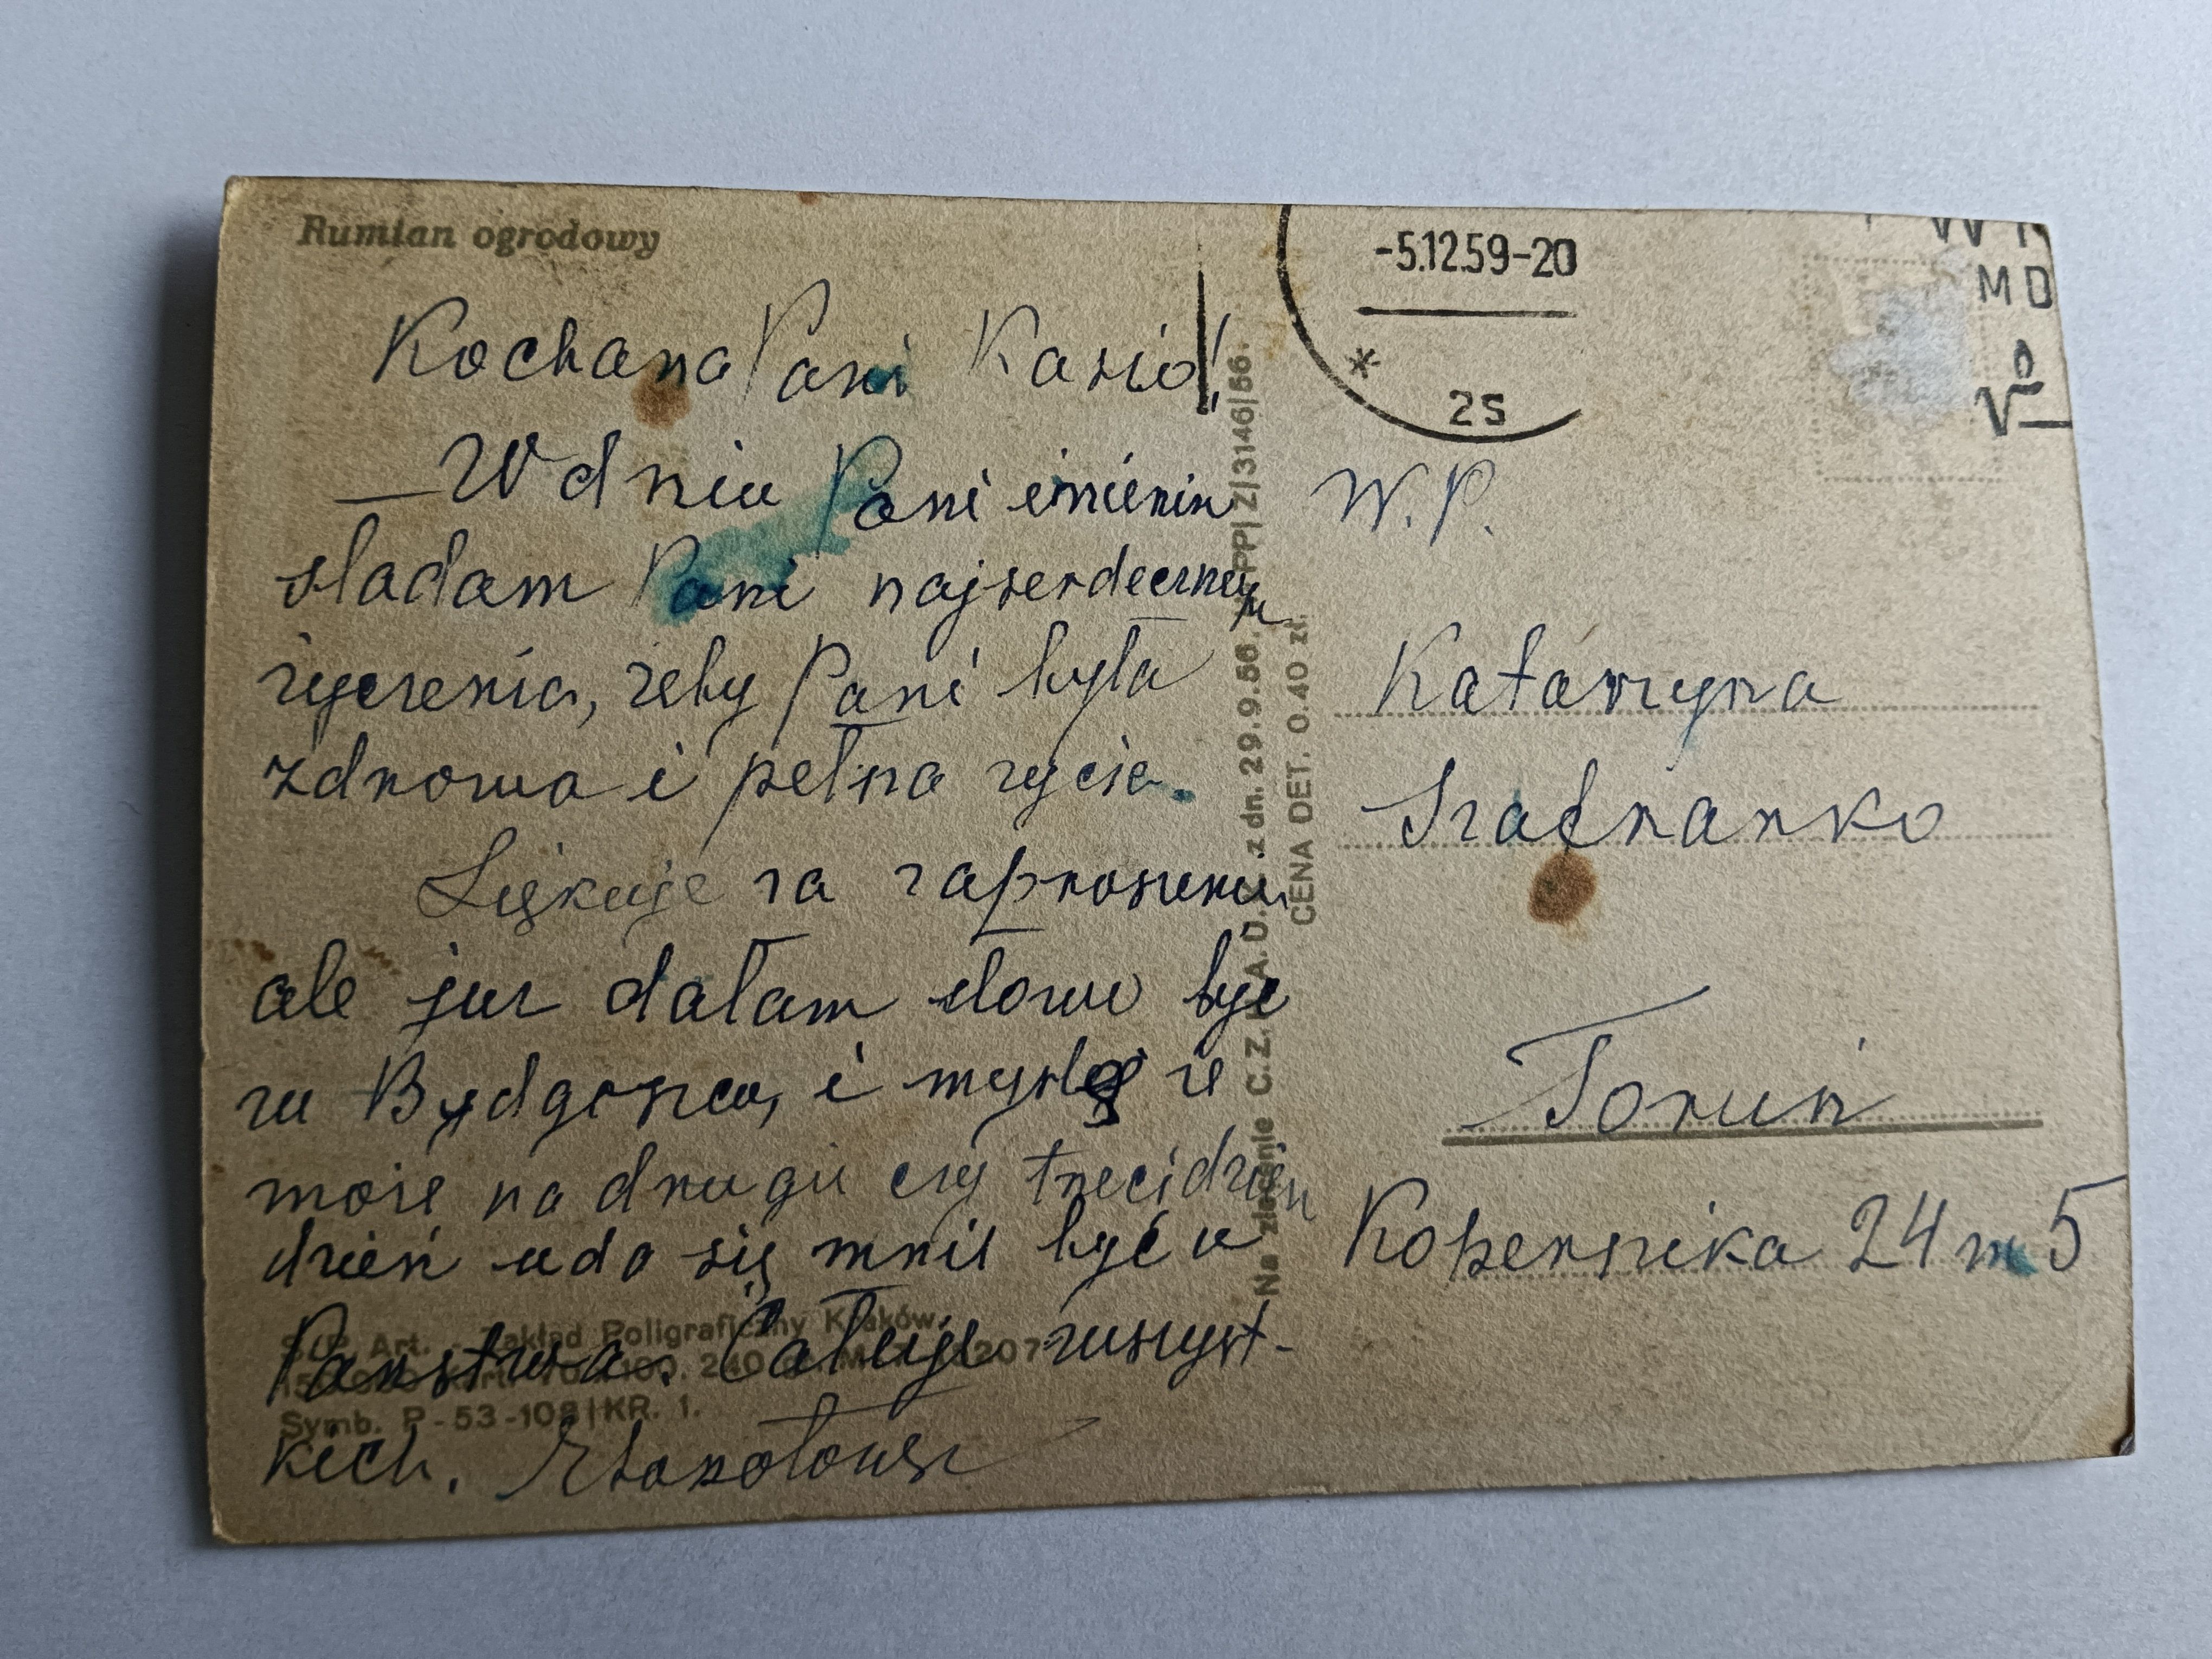 Rumian ogrodowy
Kochana Pani Kasiu!
W dniu Pani imienin
sladam Pani najserdeczniejsze
życzenia, żeby Pani była
zdrowa i pełna życia.
Dziękuję za zaproszenie
ale już dałam słowo być
w Bydgoszczu, i myślę że
może na drugi czy trzeci dzień
dzień uda się mnie być u
Państwa. Całuję wszyst-
kich.
S.I.P. Art. - Zakład Poligraficzny Kraków.
Symb. P-53-108|KR. 1.
Na zlecenie C.Z. z dn. 29.9.56. PP|Z|3146|56.
CENA DET. 0.40 zł.
-5.12.59-20
* 2s
W.P.
Katarzyna
Toruń
Kopernika 24 m 5